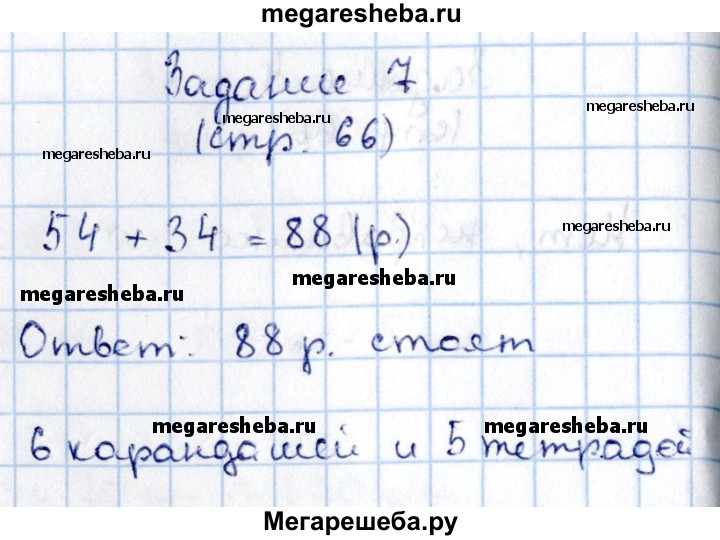 megaresheba.ru
Задание 7
megaresheba.ru
megaresheba.ru
(стр. 66)
megaresheba.ru
54 + 34 = 88 (р.)
megaresheba.ru
megaresheba.ru
megaresheba.ru
Ответ: 88 р. стоят
megaresheba.ru
megaresheba.ru
6 карандашей и 5 тетрадей
Мегарешеба.ру